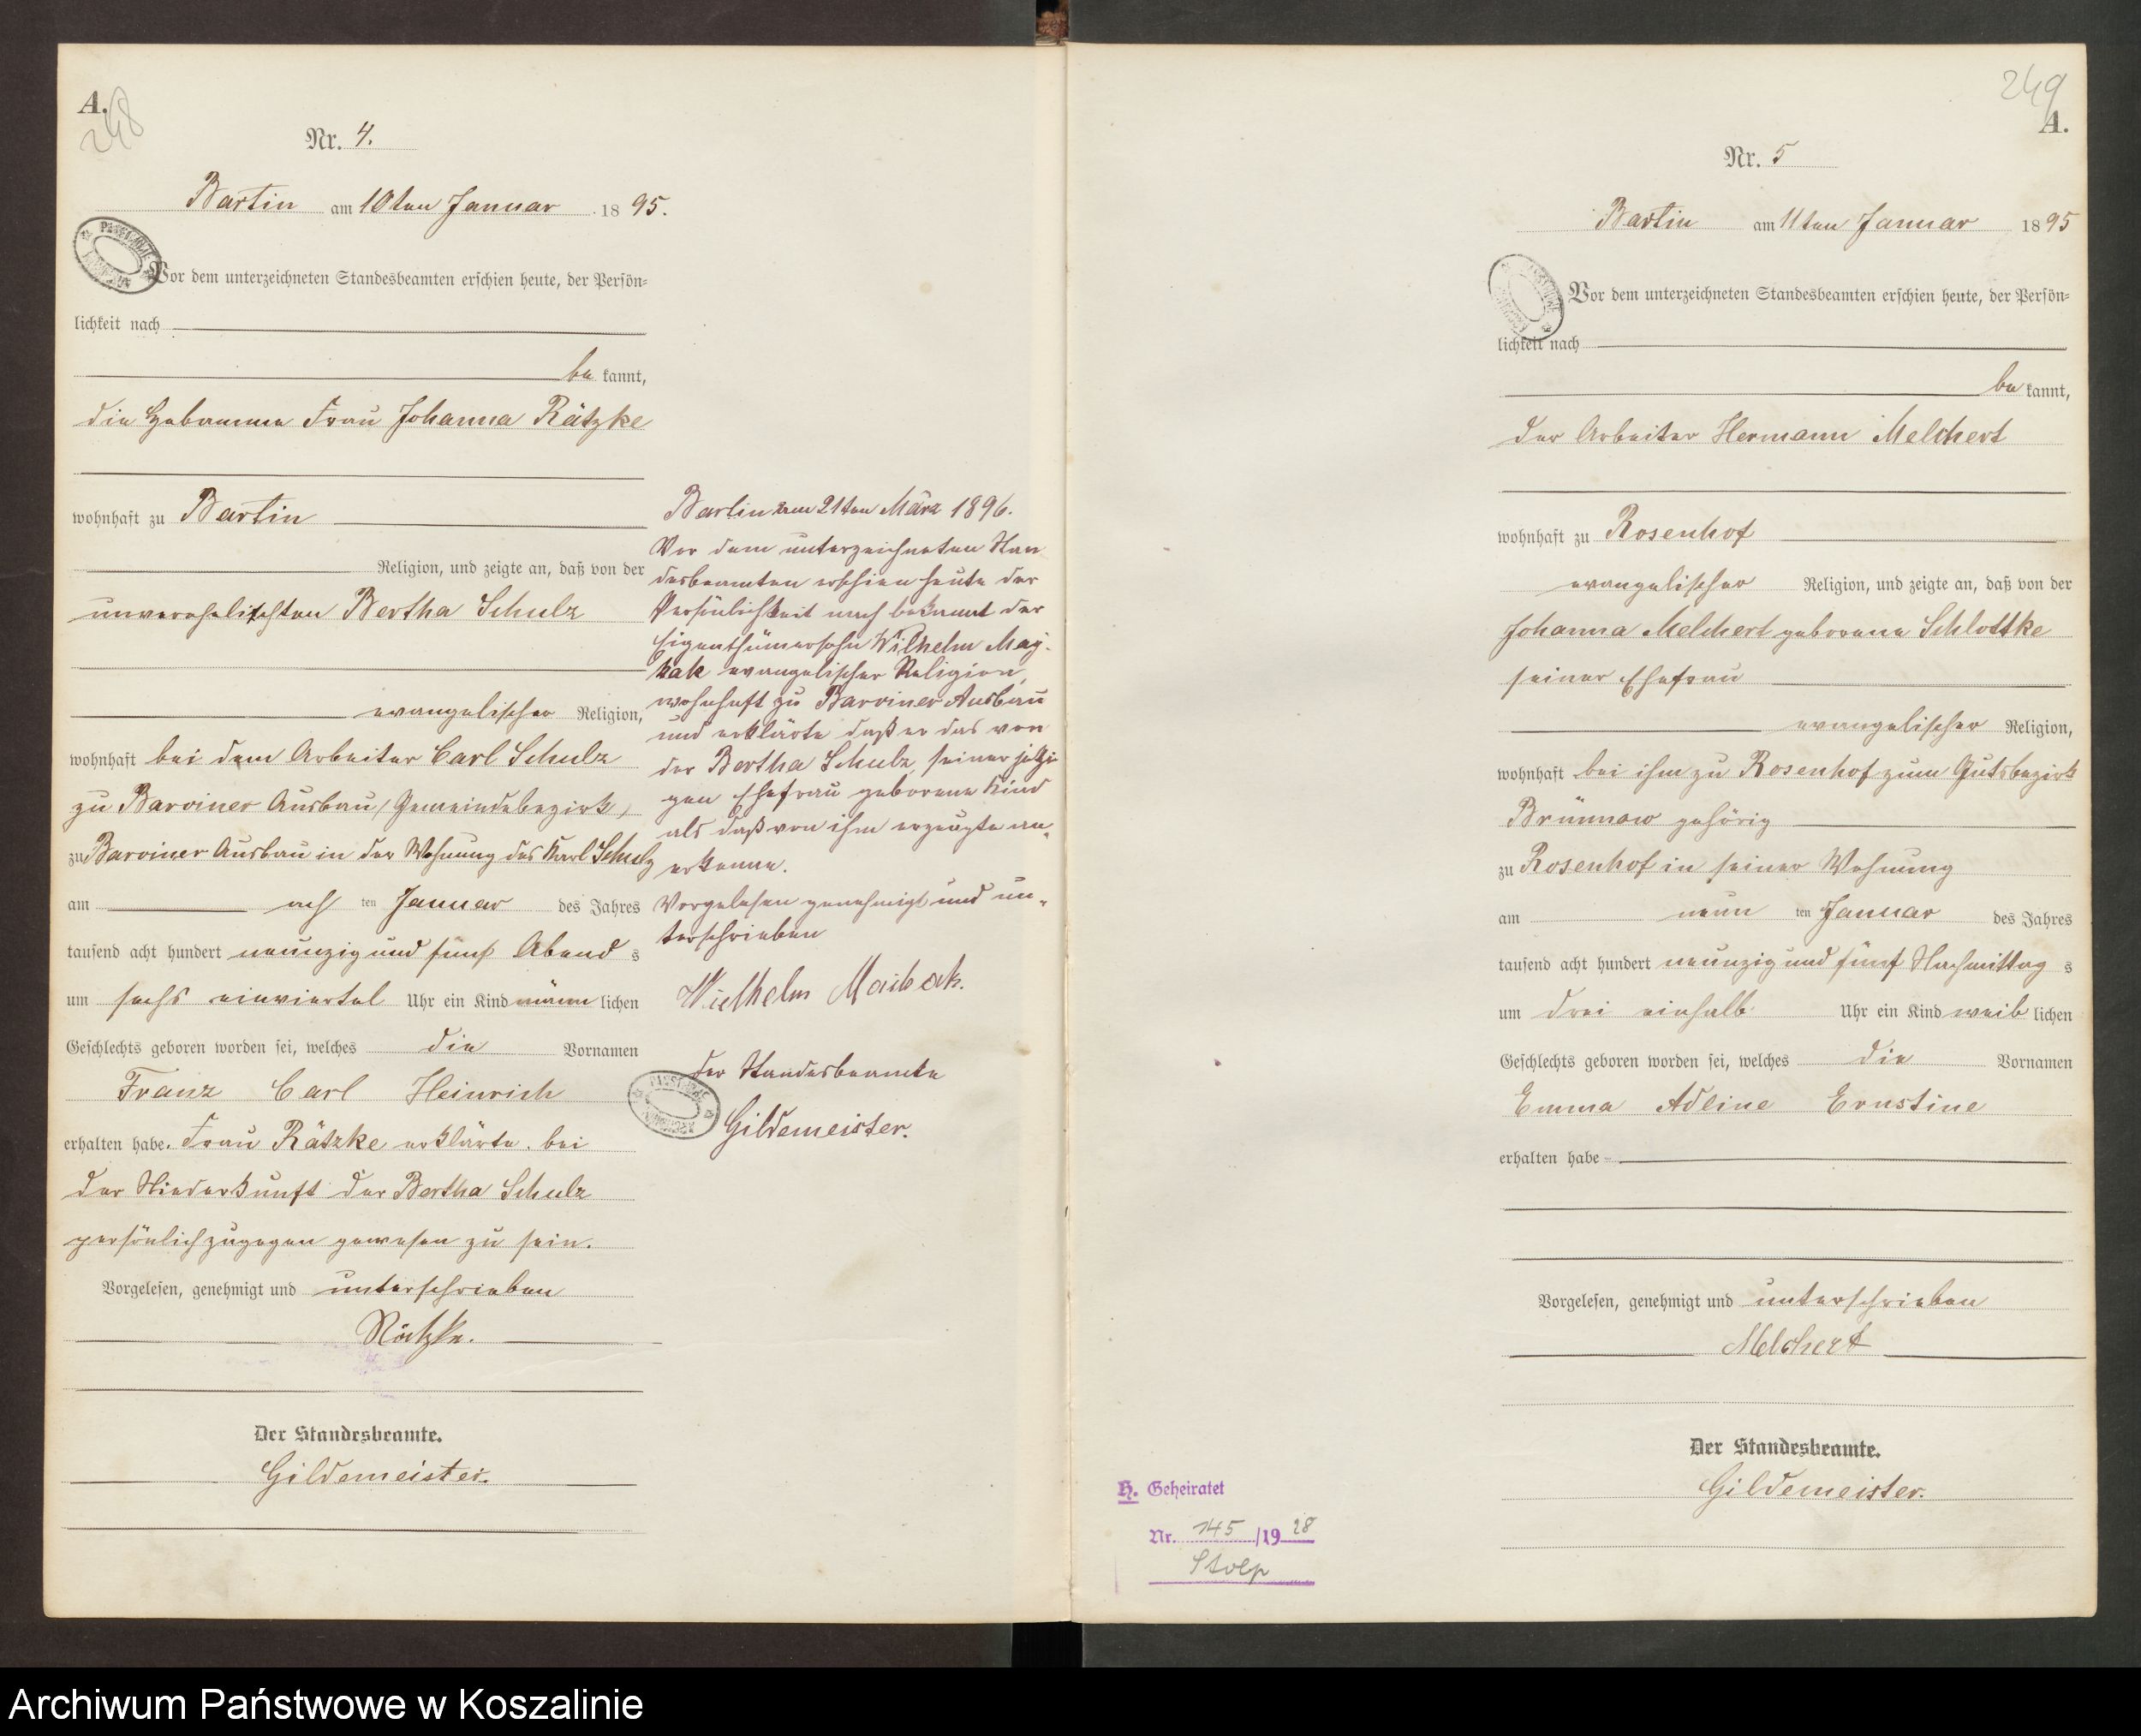 A.
248
Nr. 4.
Bartin am 10ten Januar 1895.
Vor dem unterzeichneten Standesbeamten erschien heute, der Persön-
lichkeit nach
be kannt,
die Hebamme Frau Johanna Rätzke
wohnhaft zu Bartin
Religion, und zeigte an, daß von der
unverehelichten Bertha Schulz
evangelischer Religion,
wohnhaft bei dem Arbeiter Carl Schulz
zu Barviner Ausbau, Gemeindebezirk,
zu Barviner Ausbau in der Wohnung des Karl Schulz
am ach ten Januar des Jahres
tausend acht hundert neunzig und fünf Abend s
um sechs einviertel Uhr ein Kind männ lichen
Geschlechts geboren worden sei, welches die Vornamen
Franz Carl Heinrich
erhalten habe. Frau Rätzke erklärte, bei
der Niederkunft der Bertha Schulz
persönlich zugegen gewesen zu sein.
Vorgelesen, genehmigt und unterschrieben
Rätzke.
Der Standesbeamte.
Gildemeister.
Bartin am 21ten März 1896.
Vor dem unterzeichneten Stan
desbeamten erschien heute der
Persönlichkeit nach bekannt der
Eigenthümersohn Wilhelm May-
bak evangelischer Religion,
wohnhaft zu Barviner Ausbau
und erklärte daß er das von
der Bertha Schulz, seiner jetzi
gen Ehefrau geborene Kind
als daß von ihm erzeugte an-
erkenne.
Vorgelesen genehmigt und un-
terschrieben
Wielhelm Maibak.
Der Standesbeamte
Gildemeister.
249
A.
Nr. 5
Bartin am 11ten Januar 1895
Vor dem unterzeichneten Standesbeamten erschien heute, der Persön-
lichkeit nach
be kannt,
der Arbeiter Hermann Melchert
wohnhaft zu Rosenhof
evangelischer Religion, und zeigte an, daß von der
Johanna Melchert geborene Schlottke
seiner Ehefrau
evangelischer Religion,
wohnhaft bei ihm zu Rosenhof zum Gutsbezirk
Brünnow gehörig
zu Rosenhof in seiner Wohnung
am neun ten Januar des Jahres
tausend acht hundert neunzig und fünf Nachmittag s
um drei einhalb Uhr ein Kind weib lichen
Geschlechts geboren worden sei, welches die Vornamen
Emma Adline Ernstine
erhalten habe
Vorgelesen, genehmigt und unterschrieben
Melchert
Der Standesbeamte.
Gildemeister.
H. Geheiratet
Nr. 145 /1928
Stolp
Archiwum Państwowe w Koszalinie